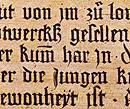 ut von im zů lon
ntwercks gesellen
er kum har jn d
er die jungen k
ewonheyt ist